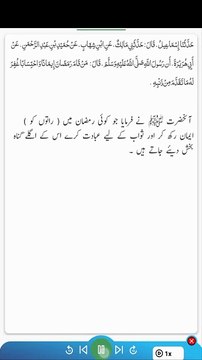 حَدَّثَنَا إِسْمَاعِيلُ، قَالَ: حَدَّثَنِي مَالِكٌ، عَنِ ابْنِ شِهَابٍ، عَنْ حُمَيْدِ بْنِ عَبْدِ الرَّحْمَنِ، عَنْ
أَبِي هُرَيْرَةَ، أَنَّ رَسُولَ اللَّهِ صَلَّى اللَّهُ عَلَيْهِ وَسَلَّمَ، قَالَ: مَنْ قَامَ رَمَضَانَ إِيمَانًا وَاحْتِسَابًا غُفِرَ
لَهُ مَا تَقَدَّمَ مِنْ ذَنْبِهِ .
آنحضرت ﷺ نے فرمایا جو کوئی رمضان میں ( راتوں کو )
ایمان رکھ کر اور ثواب کے لیے عبادت کرے اس کے اگلے گناہ
بخش دیئے جاتے ہیں ۔
1x